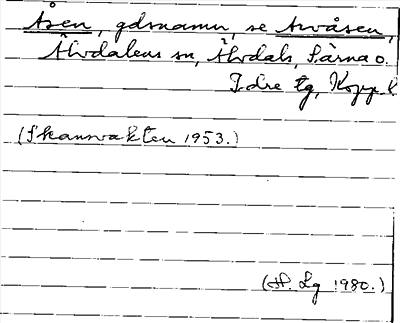 Åsen, gdsnamn, se Arvåsen,
Älvdalens sn, Älvdals, Särna o.
Idre tg, Kopp. l.
(Skansvakten 1953.)
(H. Lg 1980.)